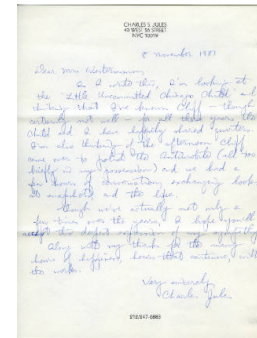 CHARLES S. JULES
49 WEST 96 STREET
NYC 10025
8 November 1981
Dear Mrs Westermann,
As I write this, I'm looking at
the "Little Uncommitted Chicago Child" and
thinking that I've known Cliff – though
certainly not well – for all these years the
Child and I have happily shared quarters.
I'm also thinking of the afternoon Cliff
came over to the
briefly in my possession) and we had a
few hours of conversation, exchanging books,
snapshots and the like.
Though we've actually met only a
few times over the years, I hope you'll
accept this expression of my sympathy
along with my thanks for the many
hours of happiness, hours that continue, with
the work.
Very sincerely,
Charles Jules